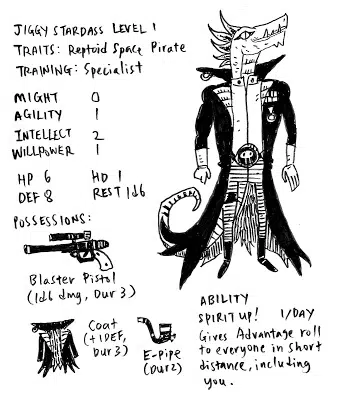 JIGGY STARDASS LEVEL 1
TRAITS: Reptoid Space Pirate
TRAINING: Specialist
MIGHT 0
AGILITY 1
INTELLECT 2
WILLPOWER 1
HP 6 HD 1
DEF 8 REST 1d6
POSSESSIONS:
Blaster Pistol
(1d6 dmg, Dur 3)
Coat
(+1 DEF,
Dur 3)
E-pipe
(Dur 2)
ABILITY
SPIRIT UP! 1/DAY
Gives Advantage roll
to everyone in short
distance, including
you.